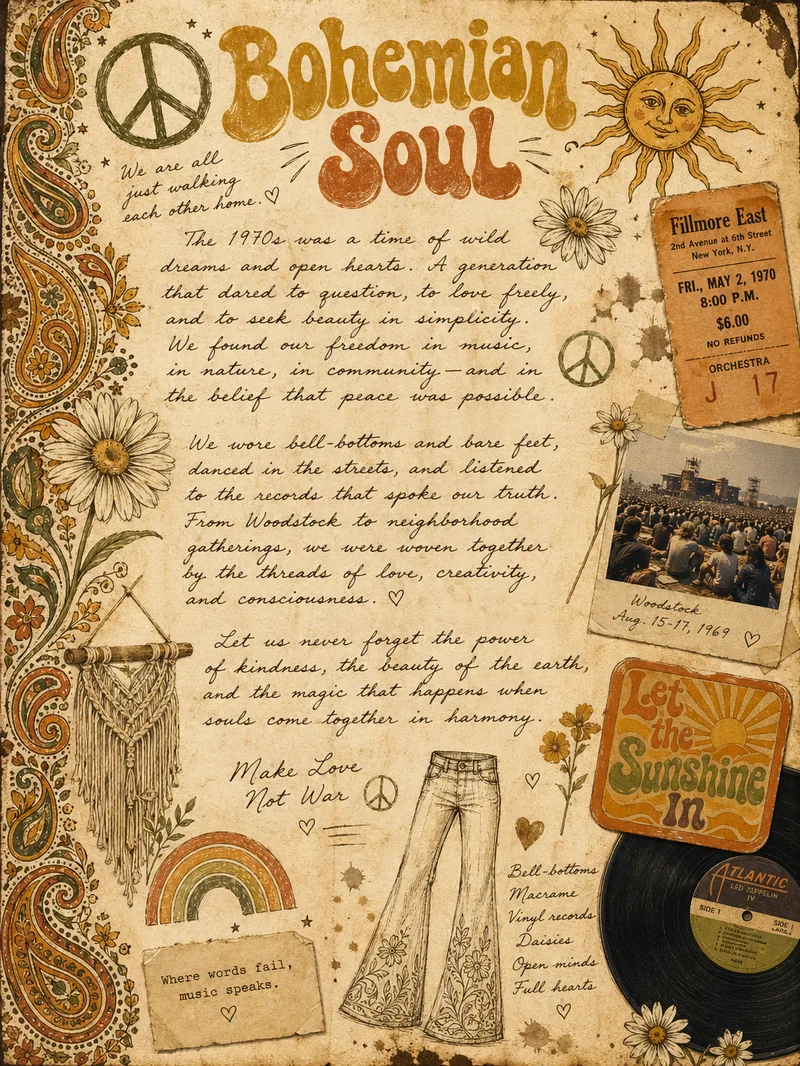 Bohemian
Soul
We are all
just walking
each other home.
The 1970s was a time of wild
dreams and open hearts. A generation
that dared to question, to love freely,
and to seek beauty in simplicity.
We found our freedom in music,
in nature, in community—and in
the belief that peace was possible.
We wore bell-bottoms and bare feet,
danced in the streets, and listened
to the records that spoke our truth.
From Woodstock to neighborhood
gatherings, we were woven together
by the threads of love, creativity,
and consciousness.
Let us never forget the power
of kindness, the beauty of the earth,
and the magic that happens when
souls come together in harmony.
Make Love
Not War
Where words fail,
music speaks.
Bell-bottoms
Macrame
Vinyl records
Daisies
Open minds
Full hearts
Fillmore East
2nd Avenue at 6th Street
New York, N.Y.
FRI., MAY 2, 1970
8:00 P.M.
$6.00
NO REFUNDS
ORCHESTRA
J 17
Woodstock
Aug. 15-17, 1969
Let
the
Sunshine
In
ATLANTIC
LED ZEPPELIN
IV
SIDE 1
SIDE 1